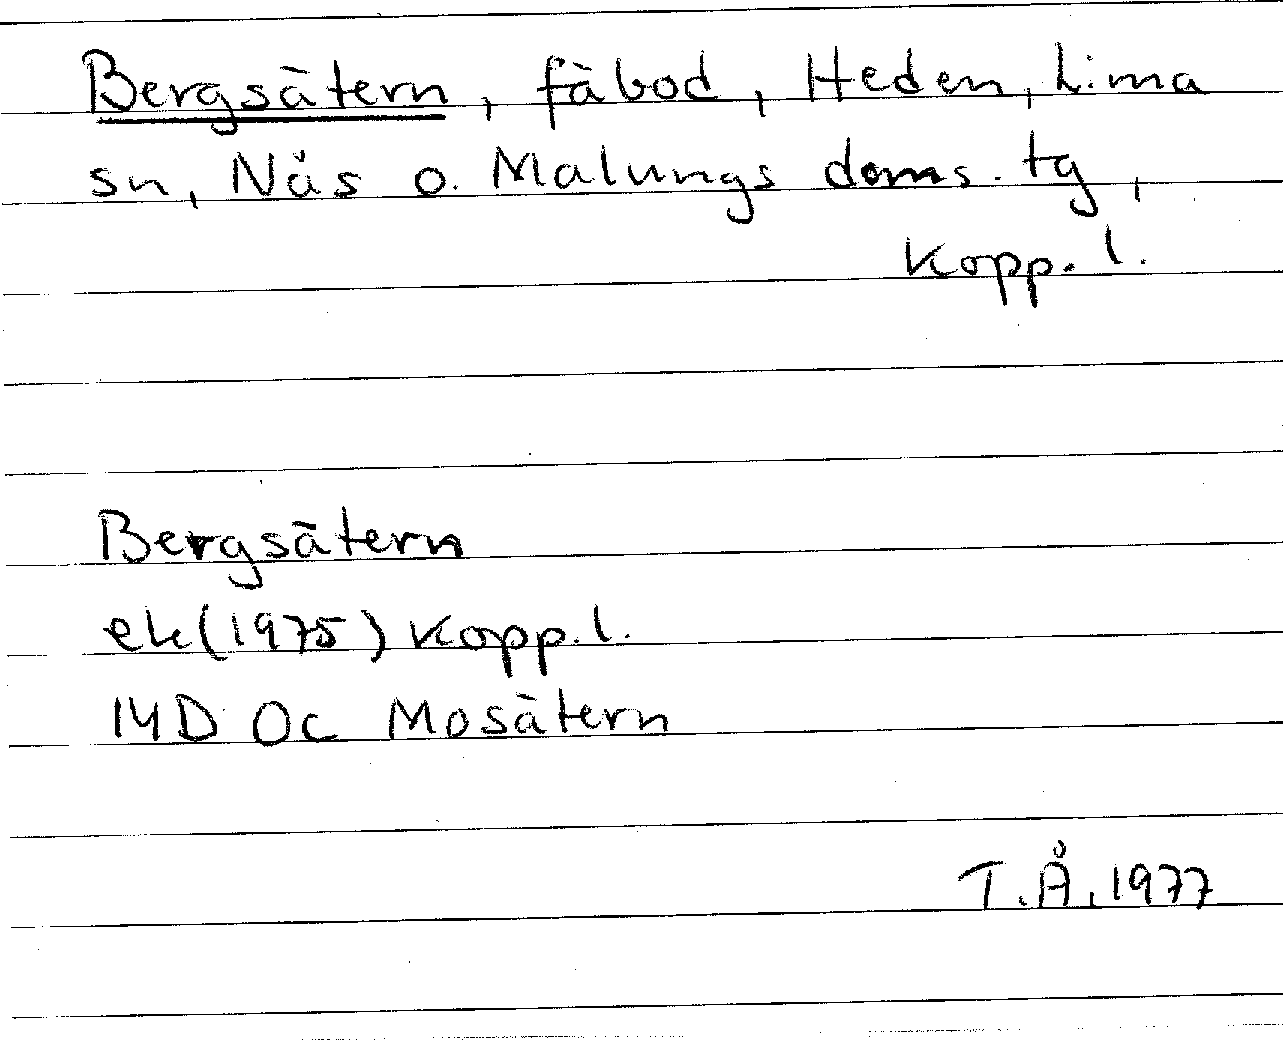 Bergsätern, fäbod, Heden, Lima
sn, Näs o. Malungs doms. tg,
Kopp. l.
Bergsätern
ek (1975) Kopp. l.
14D 0c Mosätern
T.Å. 1977